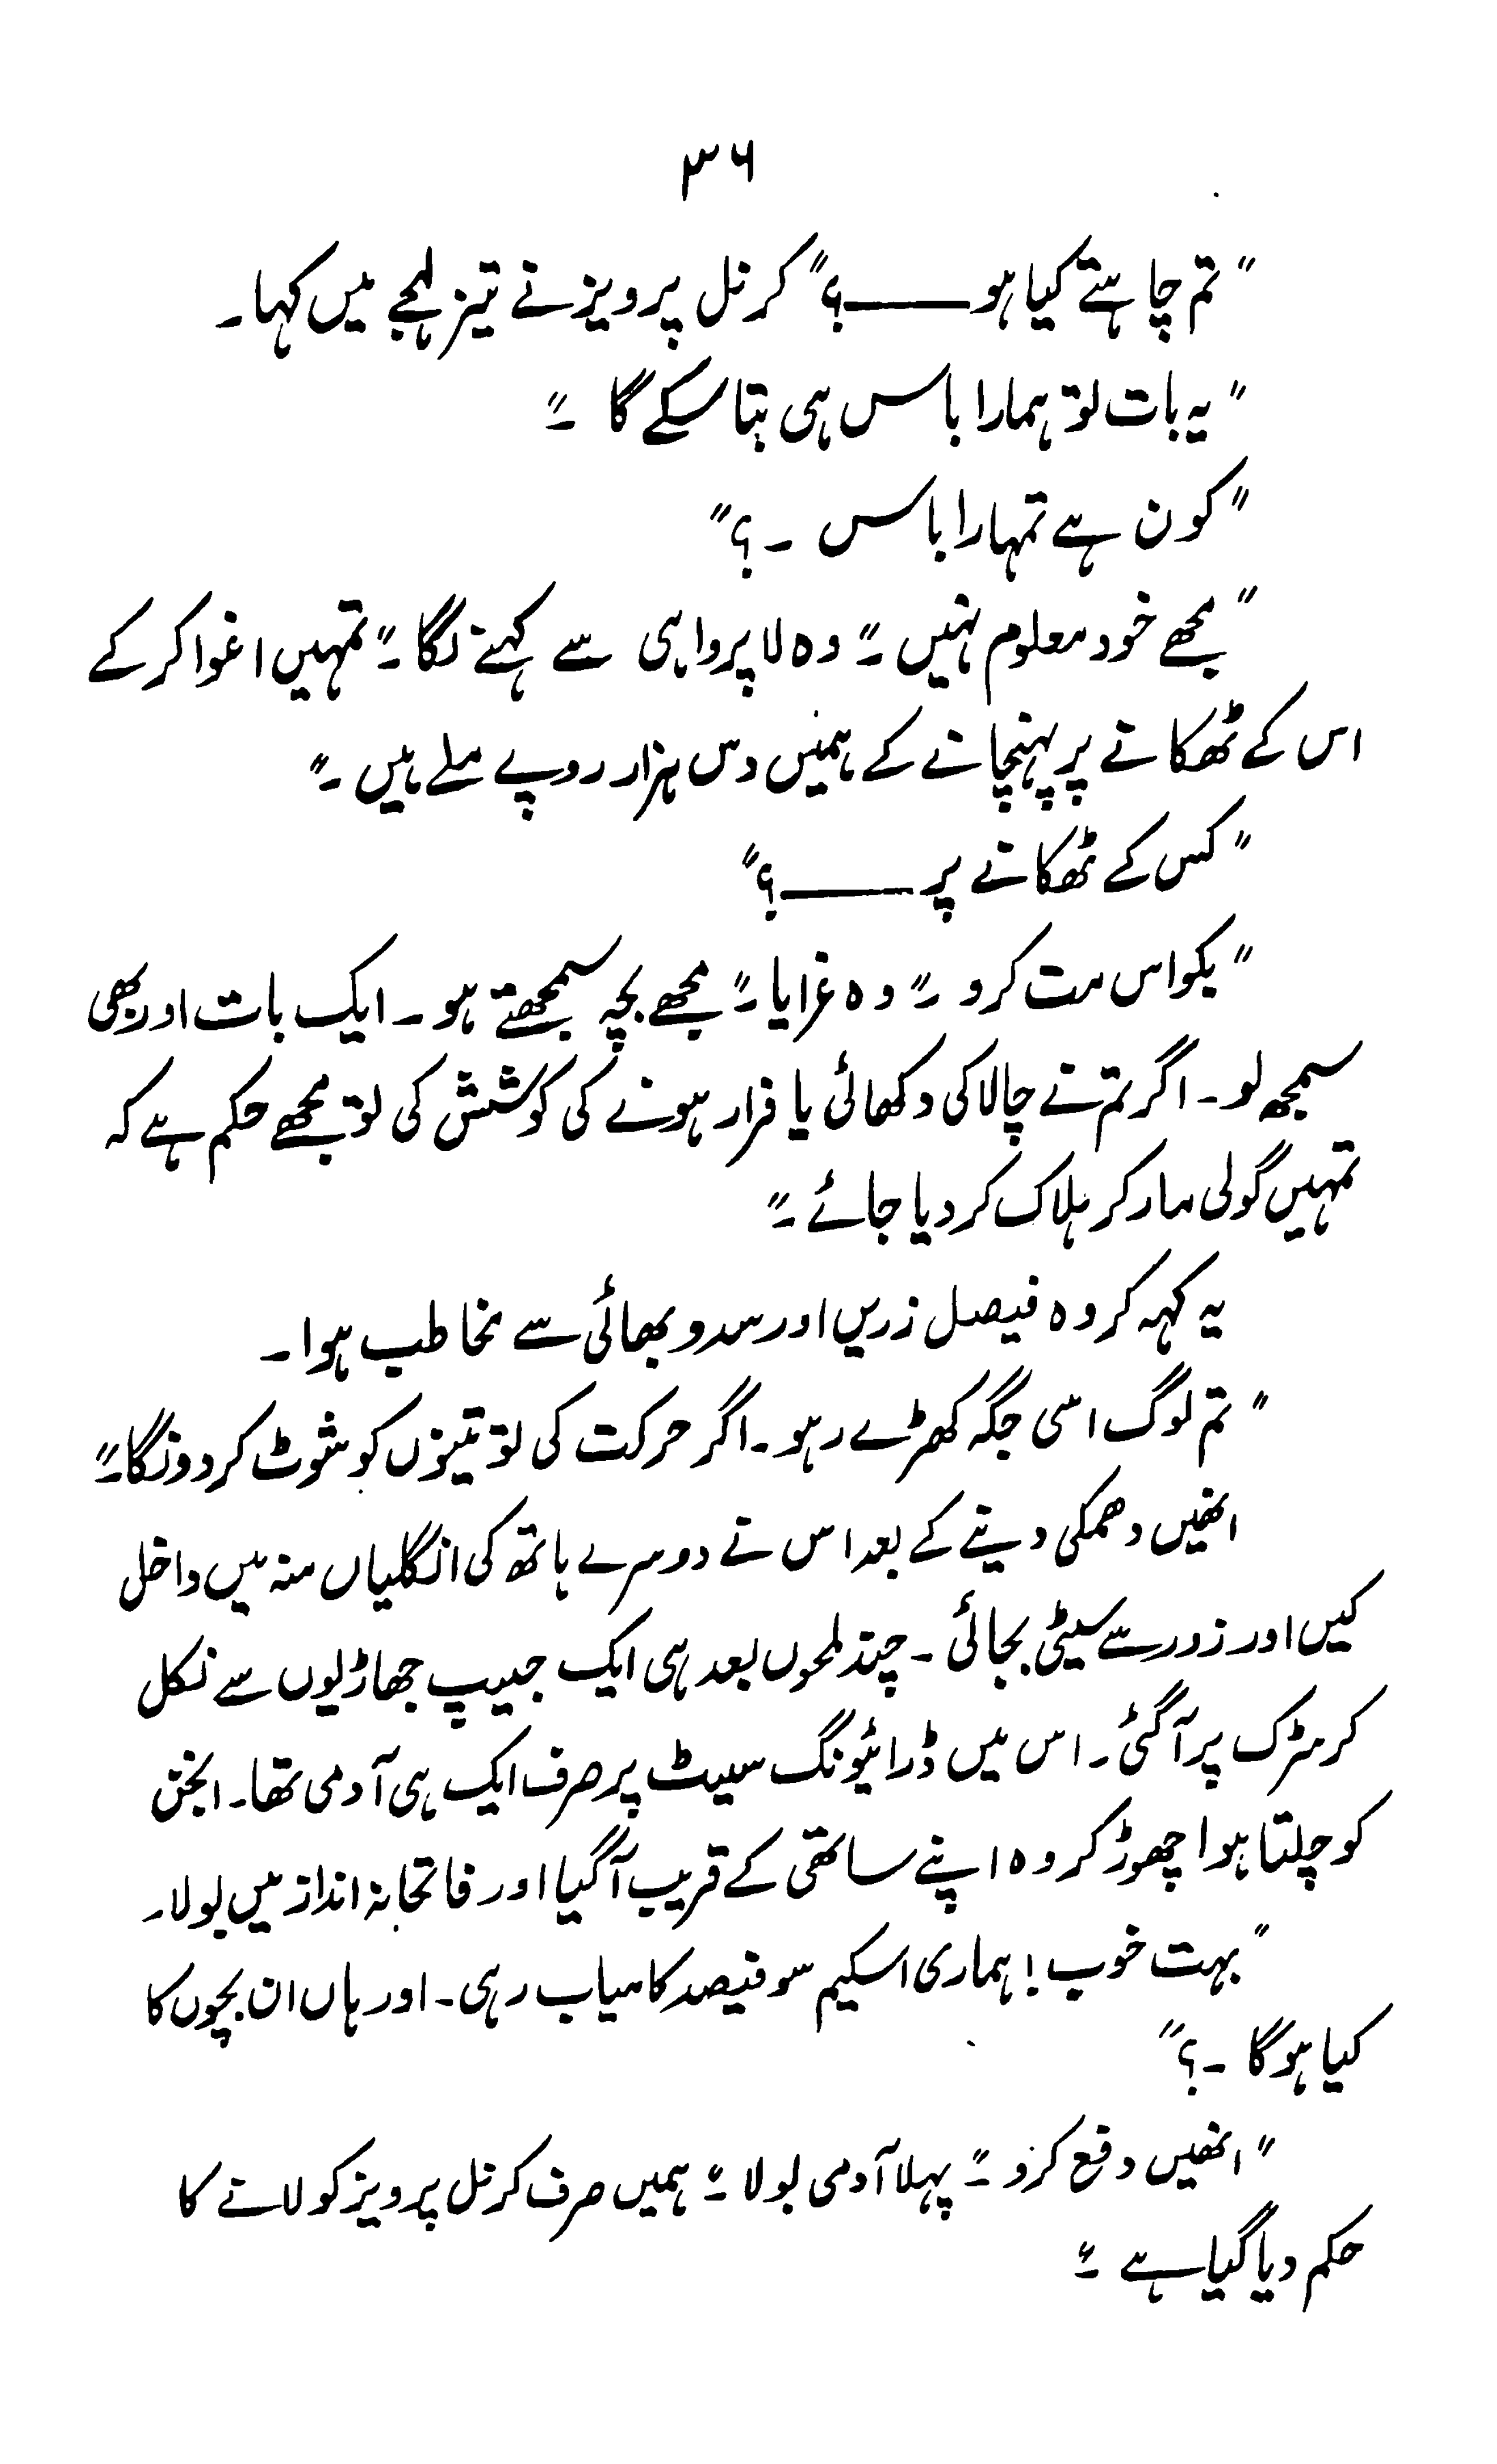 ۳۶
"تم چاہتے کیا ہو ——؟" کرنل پرویز نے تیز لہجے میں کہا۔
"یہ بات تو ہمارا باس ہی بتا سکے گا۔"
"کون ہے تمہارا باس۔؟"
"مجھے خود معلوم نہیں۔" وہ لاپرواہی سے کہنے لگا۔ "تمہیں اغوا کر کے
اس کے ٹھکانے پر پہنچانے کے ہمیں دس ہزار روپے ملے ہیں۔"
"کس کے ٹھکانے پر ——؟"
"بکواس مت کرو۔" وہ غرایا۔ "مجھے بچہ سمجھتے ہو۔ ایک بات اور بھی
سمجھ لو۔ اگر تم نے چالاکی دکھائی یا فرار ہونے کی کوشش کی تو مجھے حکم ہے کہ
تمہیں گولی مار کر ہلاک کر دیا جائے۔"
یہ کہہ کر وہ فیصل زریں اور سدو بھائی سے مخاطب ہوا۔
"تم لوگ اسی جگہ کھڑے رہو۔ اگر حرکت کی تو تینوں کو شوٹ کر دونگا۔"
انھیں دھمکی دینے کے بعد اس نے دوسرے ہاتھ کی انگلیاں منہ میں داخل
کیں اور زور سے سیٹی بجائی۔ چند لمحوں بعد ہی ایک جیپ جھاڑیوں سے نکل
کر سڑک پر آ گئی۔ اس میں ڈرائیونگ سیٹ پر صرف ایک ہی آدمی تھا۔ انجن
کو چلتا ہوا چھوڑ کر وہ اپنے ساتھی کے قریب آ گیا اور فاتحانہ انداز میں بولا۔
"بہت خوب! ہماری اسکیم سو فیصد کامیاب رہی۔ اور ہاں ان بچوں کا
کیا ہوگا۔؟"
"انھیں دفع کرو۔" پہلا آدمی بولا۔ "ہمیں صرف کرنل پرویز کو لانے کا
حکم دیا گیا ہے۔"